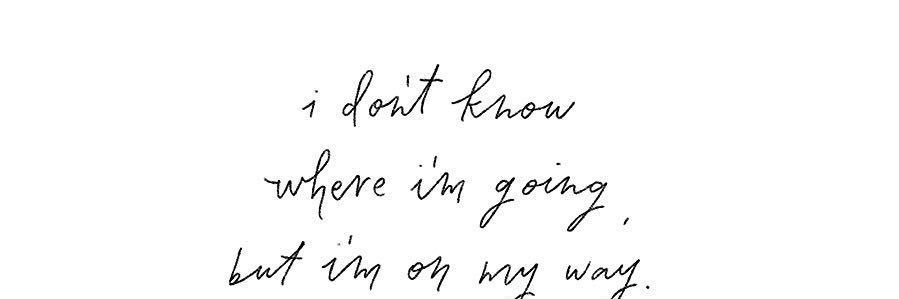 i don't know
where i'm going,
but i'm on my way.